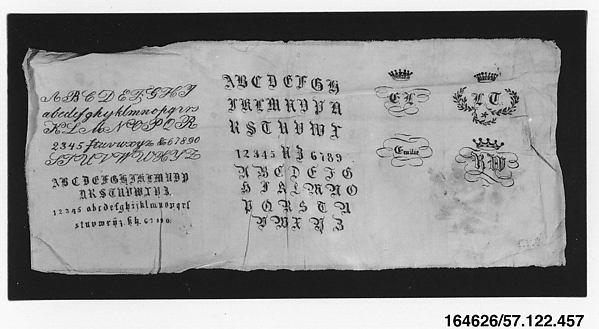 A B C D E F G H I J
abcdefghyklmnopqrs
K L M N O P Q R
2345 ftuvwxyz & 67890
S T U V W U X Y Z
A B C D E F G H I K L M N O P
Q R S T U V W X Y Z
12345 abcdefghijklmnopqrs
stuvwxyz 67890
A B C D E F G H
I K L M N O P Q
R S T U V W X
1 2 3 4 5 Y Z 6 7 8 9
A B C D E F G
H I K L M N O
P Q R S T U
V W X Y Z
EL
LT
Emilie
RW
164626/57.122.457